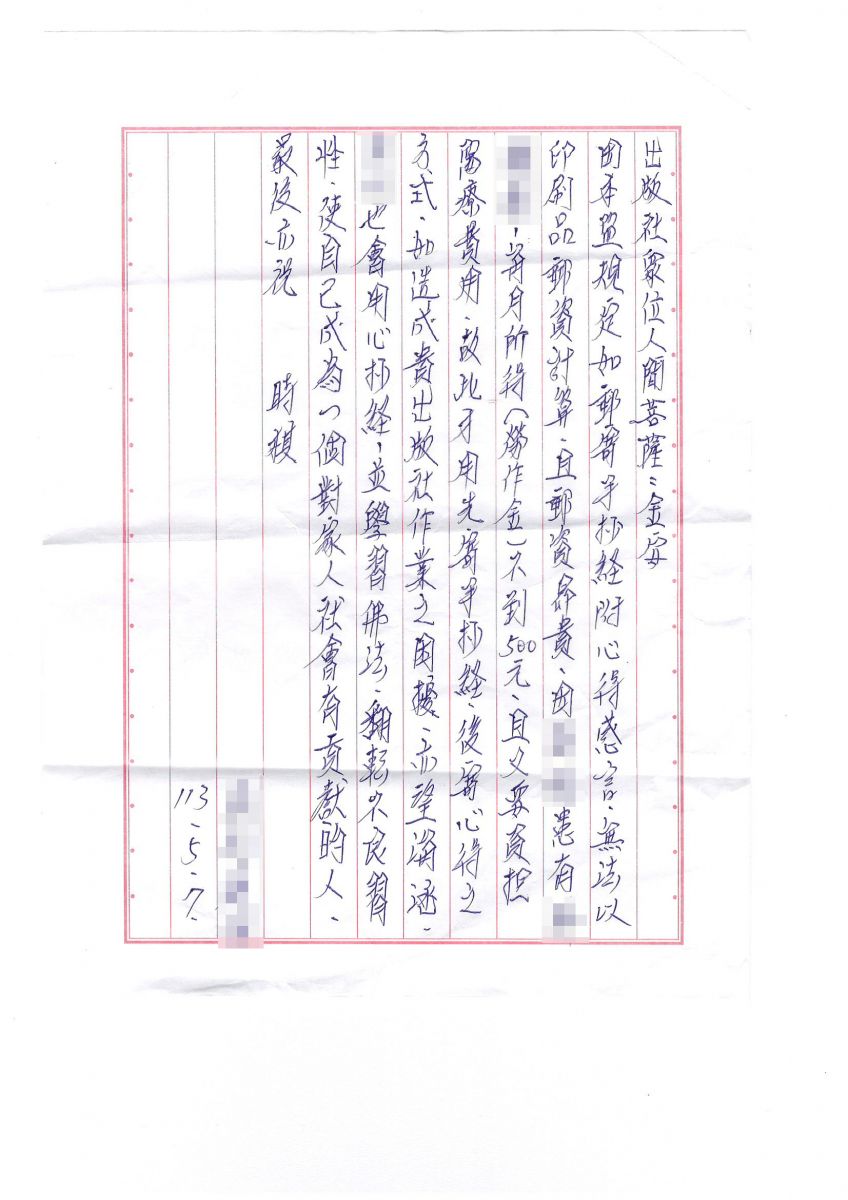 出版社眾位人間菩薩:金安
因本監規定如郵寄手抄経附心得感言無法以
印刷品郵資計算、且郵資昂貴、因患有
,每月所得(勞作金)不到500元、且又要負担
醫療費用、故此才用先寄手抄経、後寄心得之
方式、如造成貴出版社作業之困擾、亦望海涵、
也會用心抄経,並學習佛法、翻転不良習
性、使自己成為一個對家人社會有貢獻的人、
最後亦祝 時祺
113、5、7、